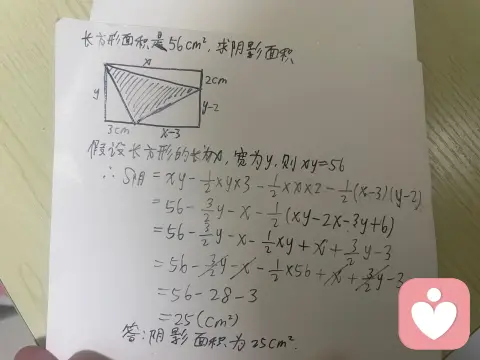 长方形面积是56cm²,求阴影面积
x
2cm
y
y-2
3cm
x-3
假设长方形的长为x,宽为y,则xy=56
∴S阴=xy-1/2×y×3-1/2×x×2-1/2(x-3)(y-2)
=56-3/2y-x-1/2(xy-2x-3y+6)
=56-3/2y-x-1/2xy+x+3/2y-3
=56-3/2y-x-1/2×56+x+3/2y-3
=56-28-3
=25(cm²)
答:阴影面积为25cm².